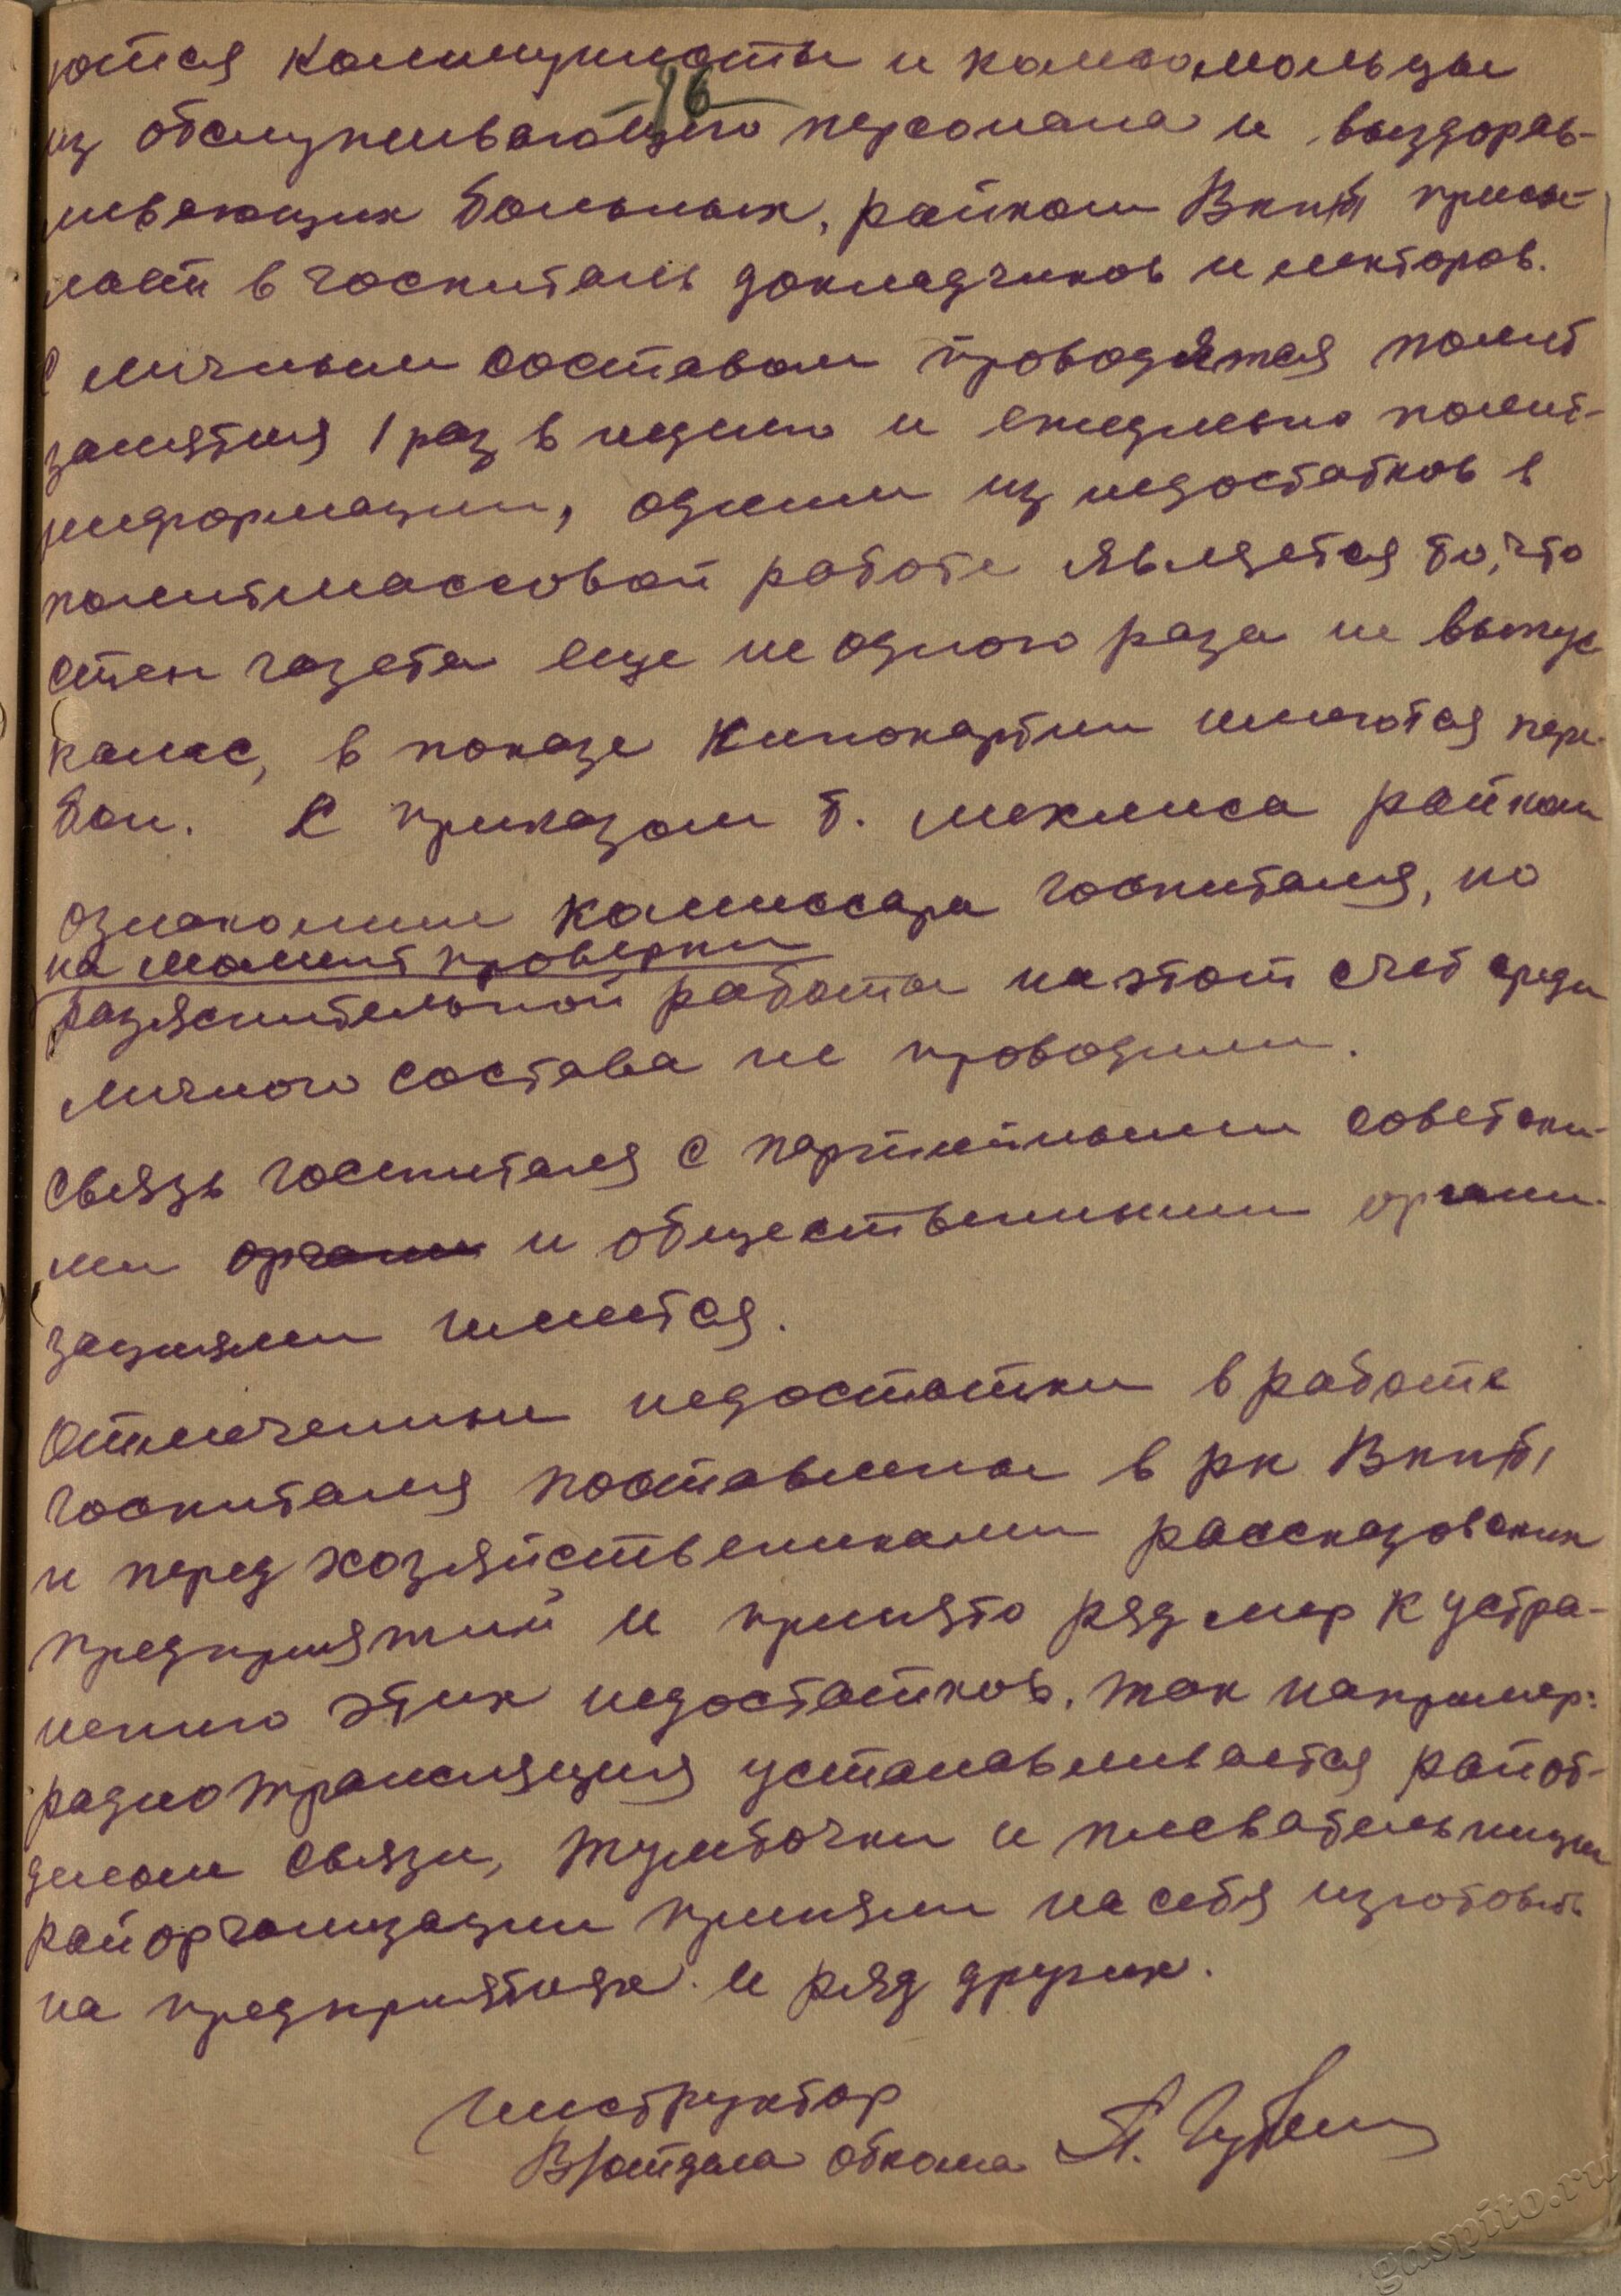 ются коммунисты и комсомольцы
96
из обслуживающего персонала и выздорав-
ливающих больных, райком ВКП(б) присы-
лает в госпиталь докладчиков и лекторов.
С личным составом проводятся полит
занятия 1 раз в неделю и ежедневно полит-
информации, одним из недостатков в
политмассовой работе является то, что
стен газета еще не одного раза не выпус
калас, в показе кинокартин имеются пере-
бои. С приказом т. Мехлиса райком
ознакомил комиссара госпиталя, но
на момент проверки
разяснительной работы на этот счет среди
личного состава не проводили.
Связь госпиталя с партийными советски-
ми органи и общественными органи-
зациями имеется.
Отмеченные недостатки в работе
госпиталя поставлены в рк ВКП(б)
и перед хозяйственниками рассказовских
предприятий и принято ряд мер к устра-
нению этих недостатков. так например:
радиотрансляция устанавливается райот-
делом связи, тумбочки и плевательницы
райорганизации приняли на себя изготовить
на предприятиях. и ряд других.
Инструктор
В/отдела обкома
gaspito.ru